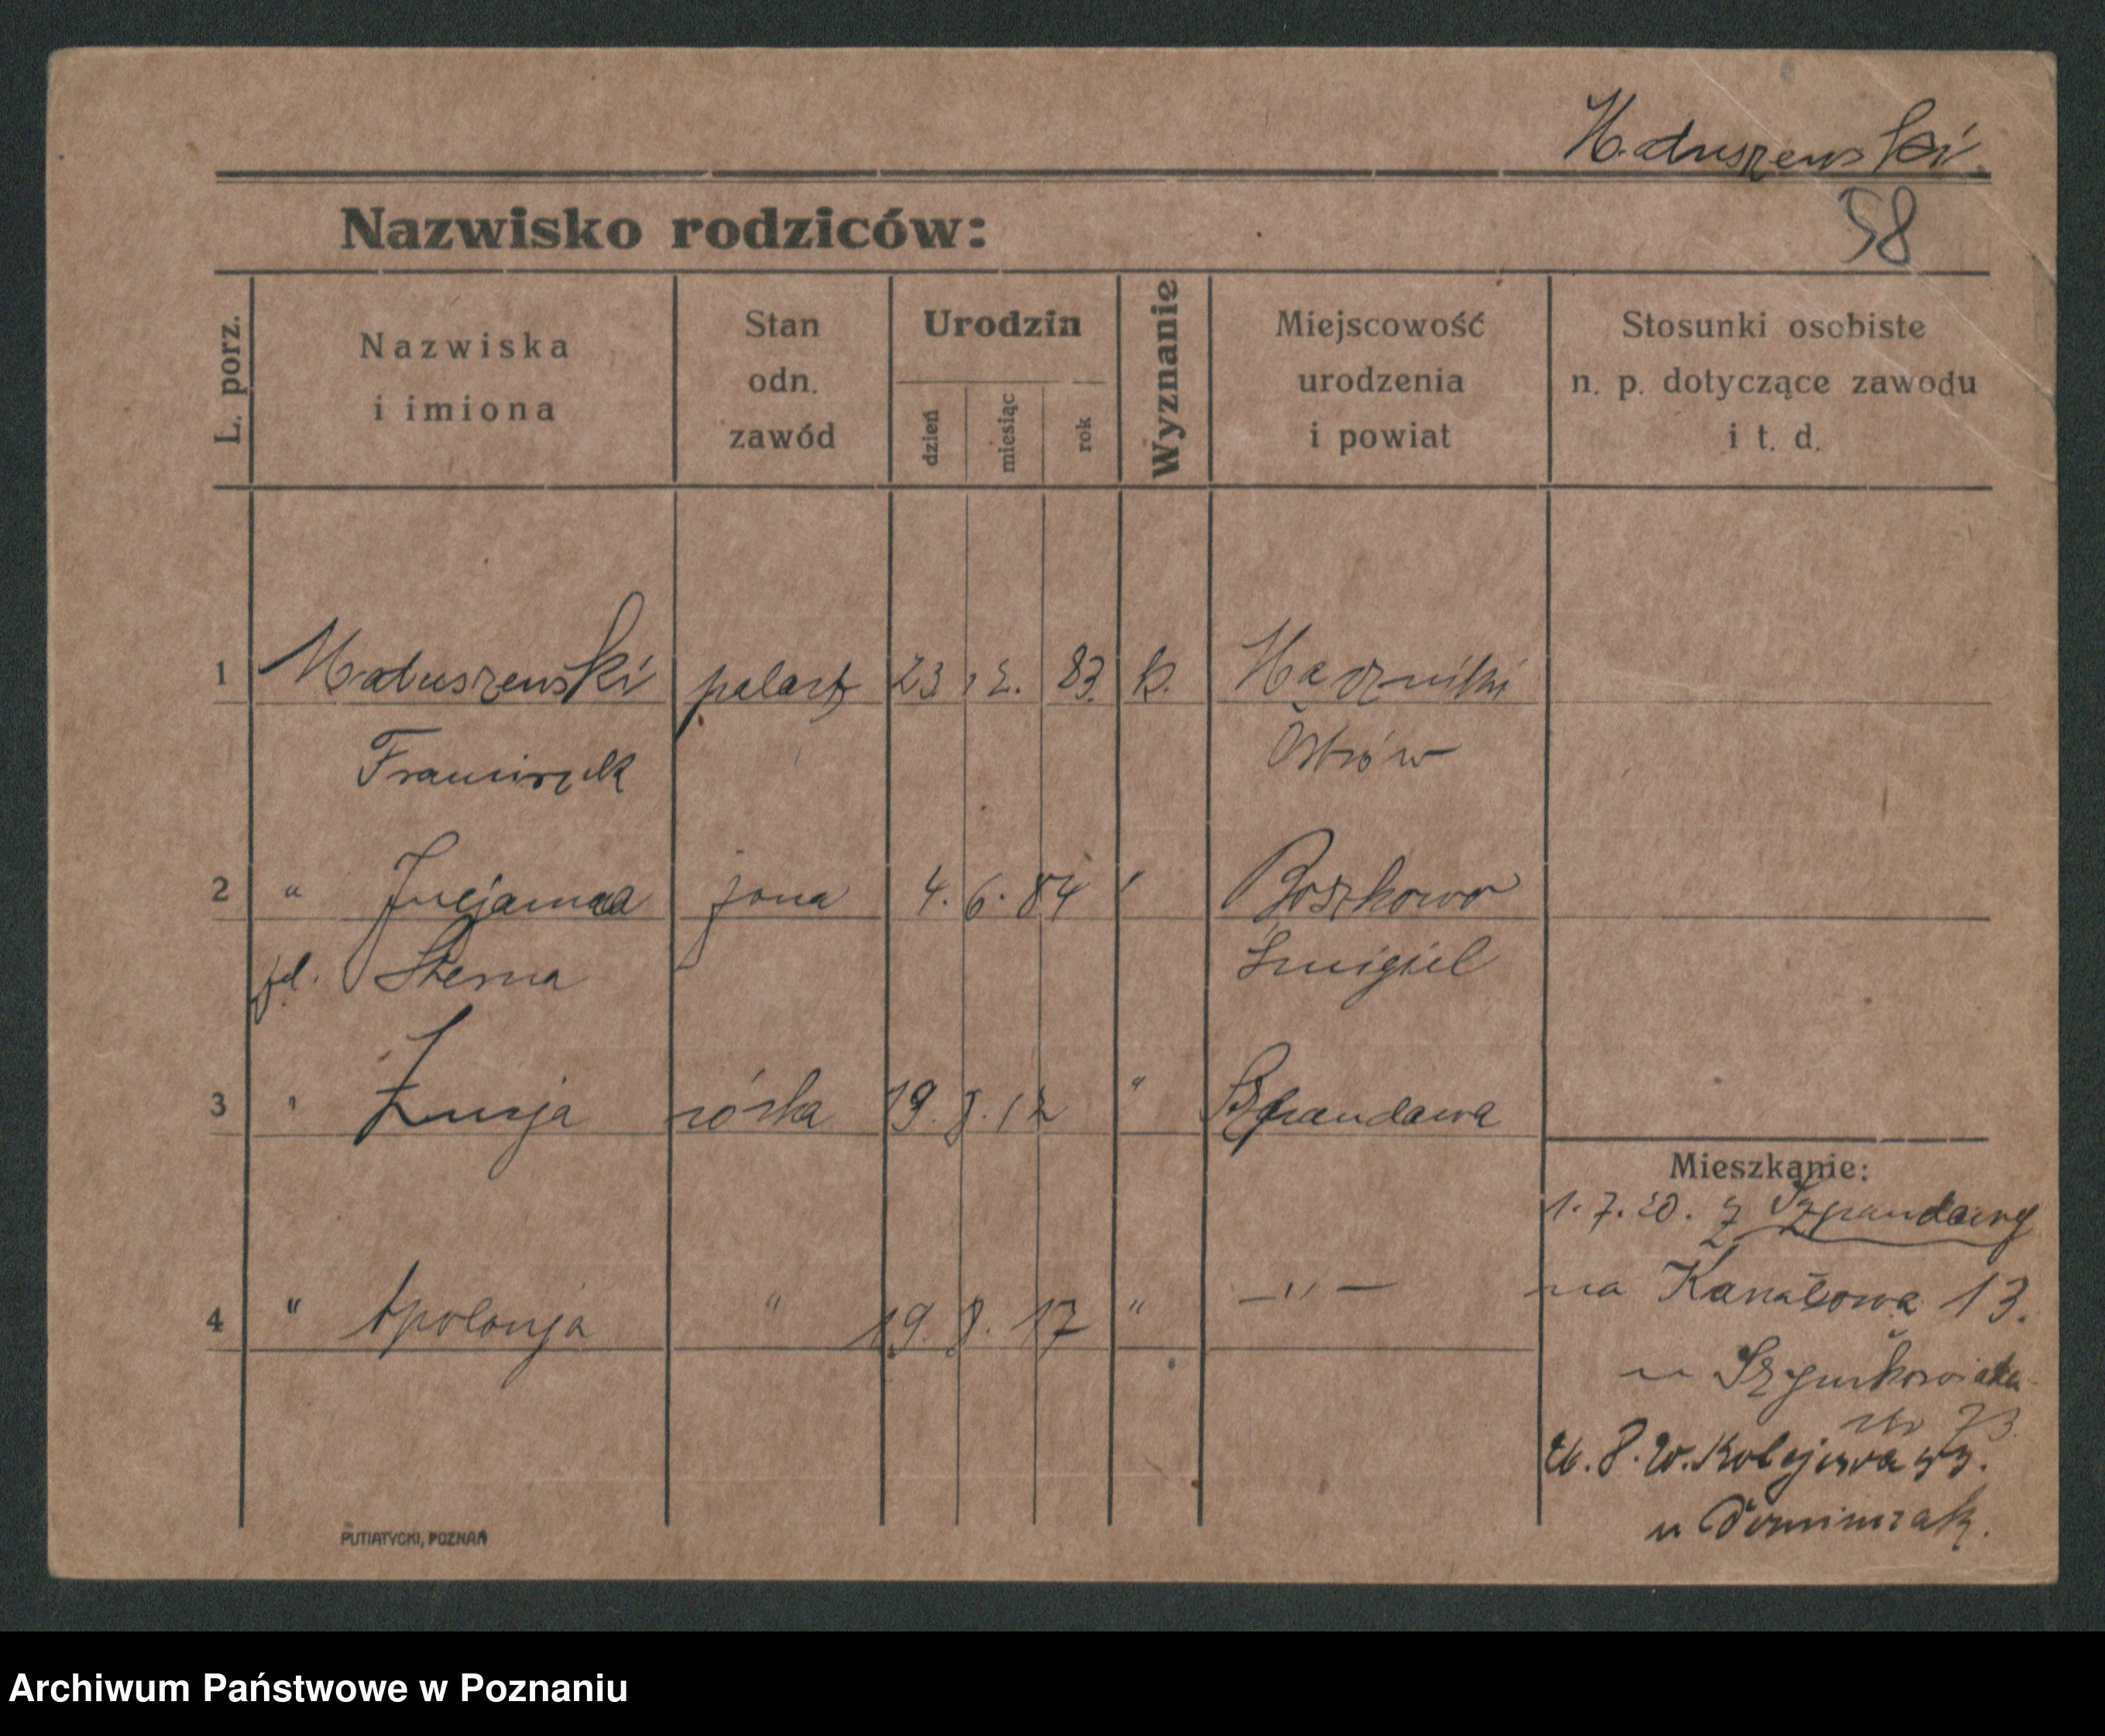 Matuszewski.
58
Nazwisko rodziców:
L. porz.
Nazwiska
i imiona
Stan
odn.
zawód
Urodzin
dzień
miesiąc
rok
Wyznanie
Miejscowość
urodzenia
i powiat
Stosunki osobiste
n. p. dotyczące zawodu
i t. d.
1 Matuszewski palacz 23. 12. 83. k.
Franciszek Ostrów
2 " Juljanna żona 4. 6. 84 " Boszkowo
Sterna Śmigiel
3 " Łucja córka 19. 8. 12 " Szpandawa
4 " Apolonja " 19. 8. 17 " —"—
Mieszkanie:
1. 7. 20. z Szpandawy
na Kanałowa 13.
u Szymkowiaka
8. 20. Kolejowa
u Dominiczak.
PUTIATYCKI, POZNAŃ
Archiwum Państwowe w Poznaniu